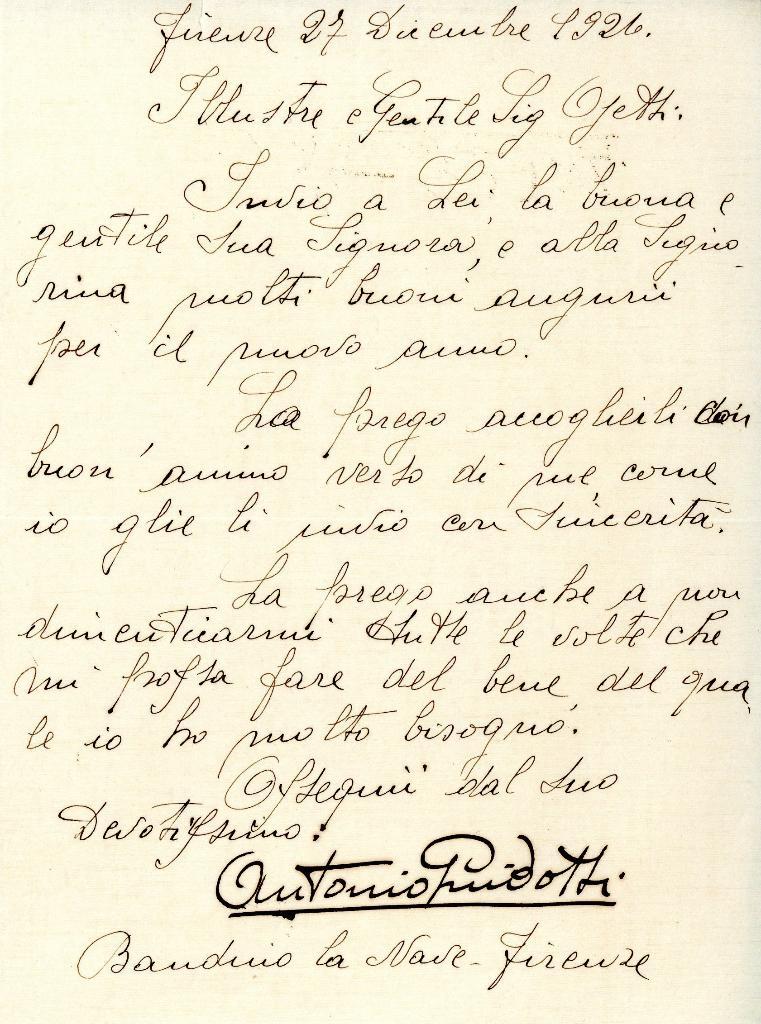 Firenze 27 Dicembre 1926.
Illustre e Gentile Sig Ojetti.
Invio a Lei, la buona e
gentile sua Signora, e alla Signo-
rina molti buoni augurii
per il nuovo anno.
La prego accoglierli con
buon' animo verso di me come
io glie li invio con sincerità.
La prego anche a non
dimenticarmi tutte le volte che
mi possa fare del bene del qua-
le io ho molto bisogno.
Ossequii dal suo
Devotissimo:
Antonio Guidotti
Bandino la Nave - Firenze